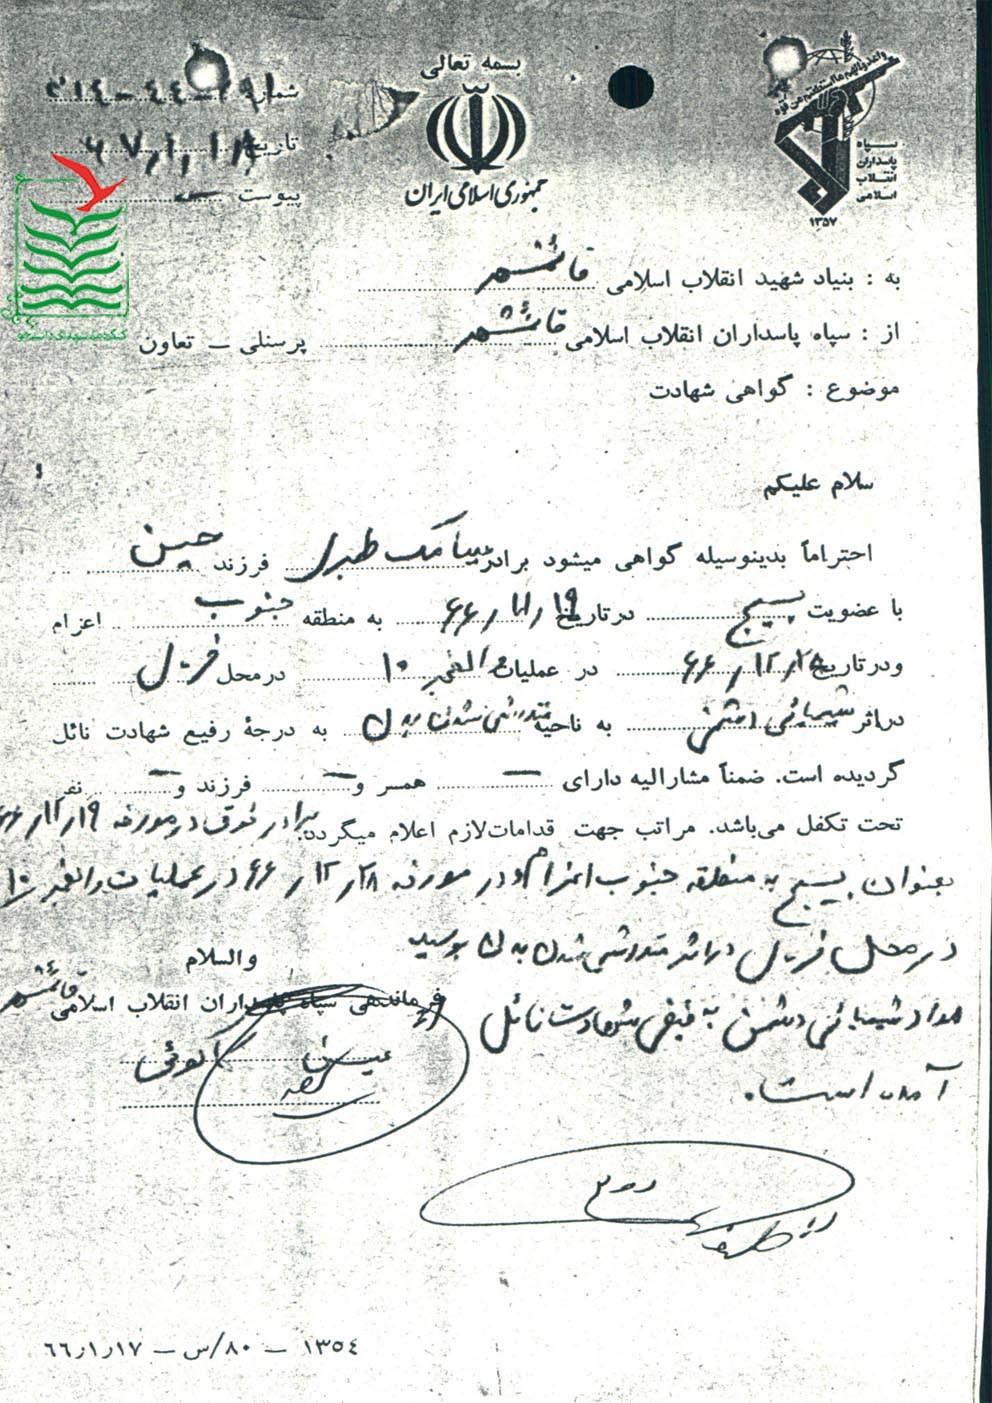 بسمه تعالی
جمهوری اسلامی ایران
شماره
تاریخ ۶۷/۱/۱۸
پیوست —
سپاه
پاسداران
انقلاب
اسلامی
۱۳۵۷
به : بنیاد شهید انقلاب اسلامی قائمشهر
از : سپاه پاسداران انقلاب اسلامی قائمشهر پرسنلی – تعاون
موضوع : گواهی شهادت
سلام علیکم
احتراماً بدینوسیله گواهی میشود برادر سیامک فرزند حسین
با عضویت بسیج در تاریخ ۶۶/۱۱/۱۹ به منطقه جنوب اعزام
و در تاریخ ۶۶/۱۲/۲۸ در عملیات والفجر ۱۰ در محل خرمال
در اثر شیمیائی دشمن به ناحیه به درجهٔ رفیع شهادت نائل
گردیده است. ضمناً مشارالیه دارای — همسر و — فرزند و — نفر
تحت تکفل می‌باشد. مراتب جهت قدامات لازم اعلام میگردد. برادر فوق در مورخه ۶۶/۱۱/۱۹
بعنوان بسیج به منطقه جنوب اعزام و در مورخه ۶۶/۱۲/۲۸ در عملیات والفجر ۱۰
در محل خرمال در اثر متلاشی شدن بدن بوسیله
مواد شیمیائی دشمن به فیض شهادت نائل
آمده است.
والسلام
فرماندهی سپاه پاسداران انقلاب اسلامی قائمشهر
۱۳۵۴ – ۸۰/س – ۶۶/۱/۱۷